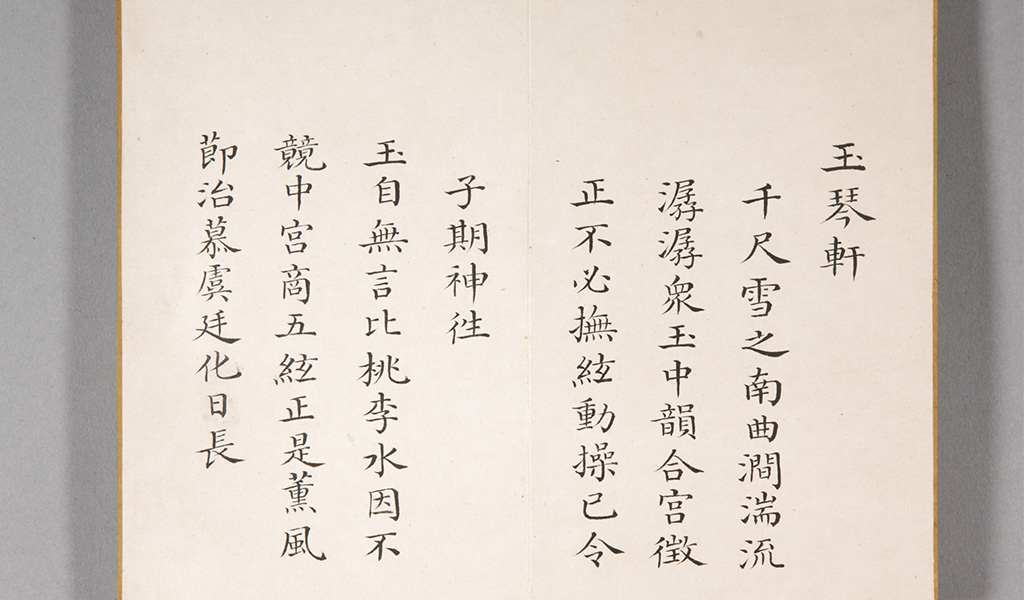 玉琴軒
千尺雪之南曲澗湍流
潺潺衆玉中韻合宮徴
正不必撫絃動操已令
子期神徃
玉自無言比桃李水因不
競中宮商五絃正是薰風
節治慕虞廷化日長